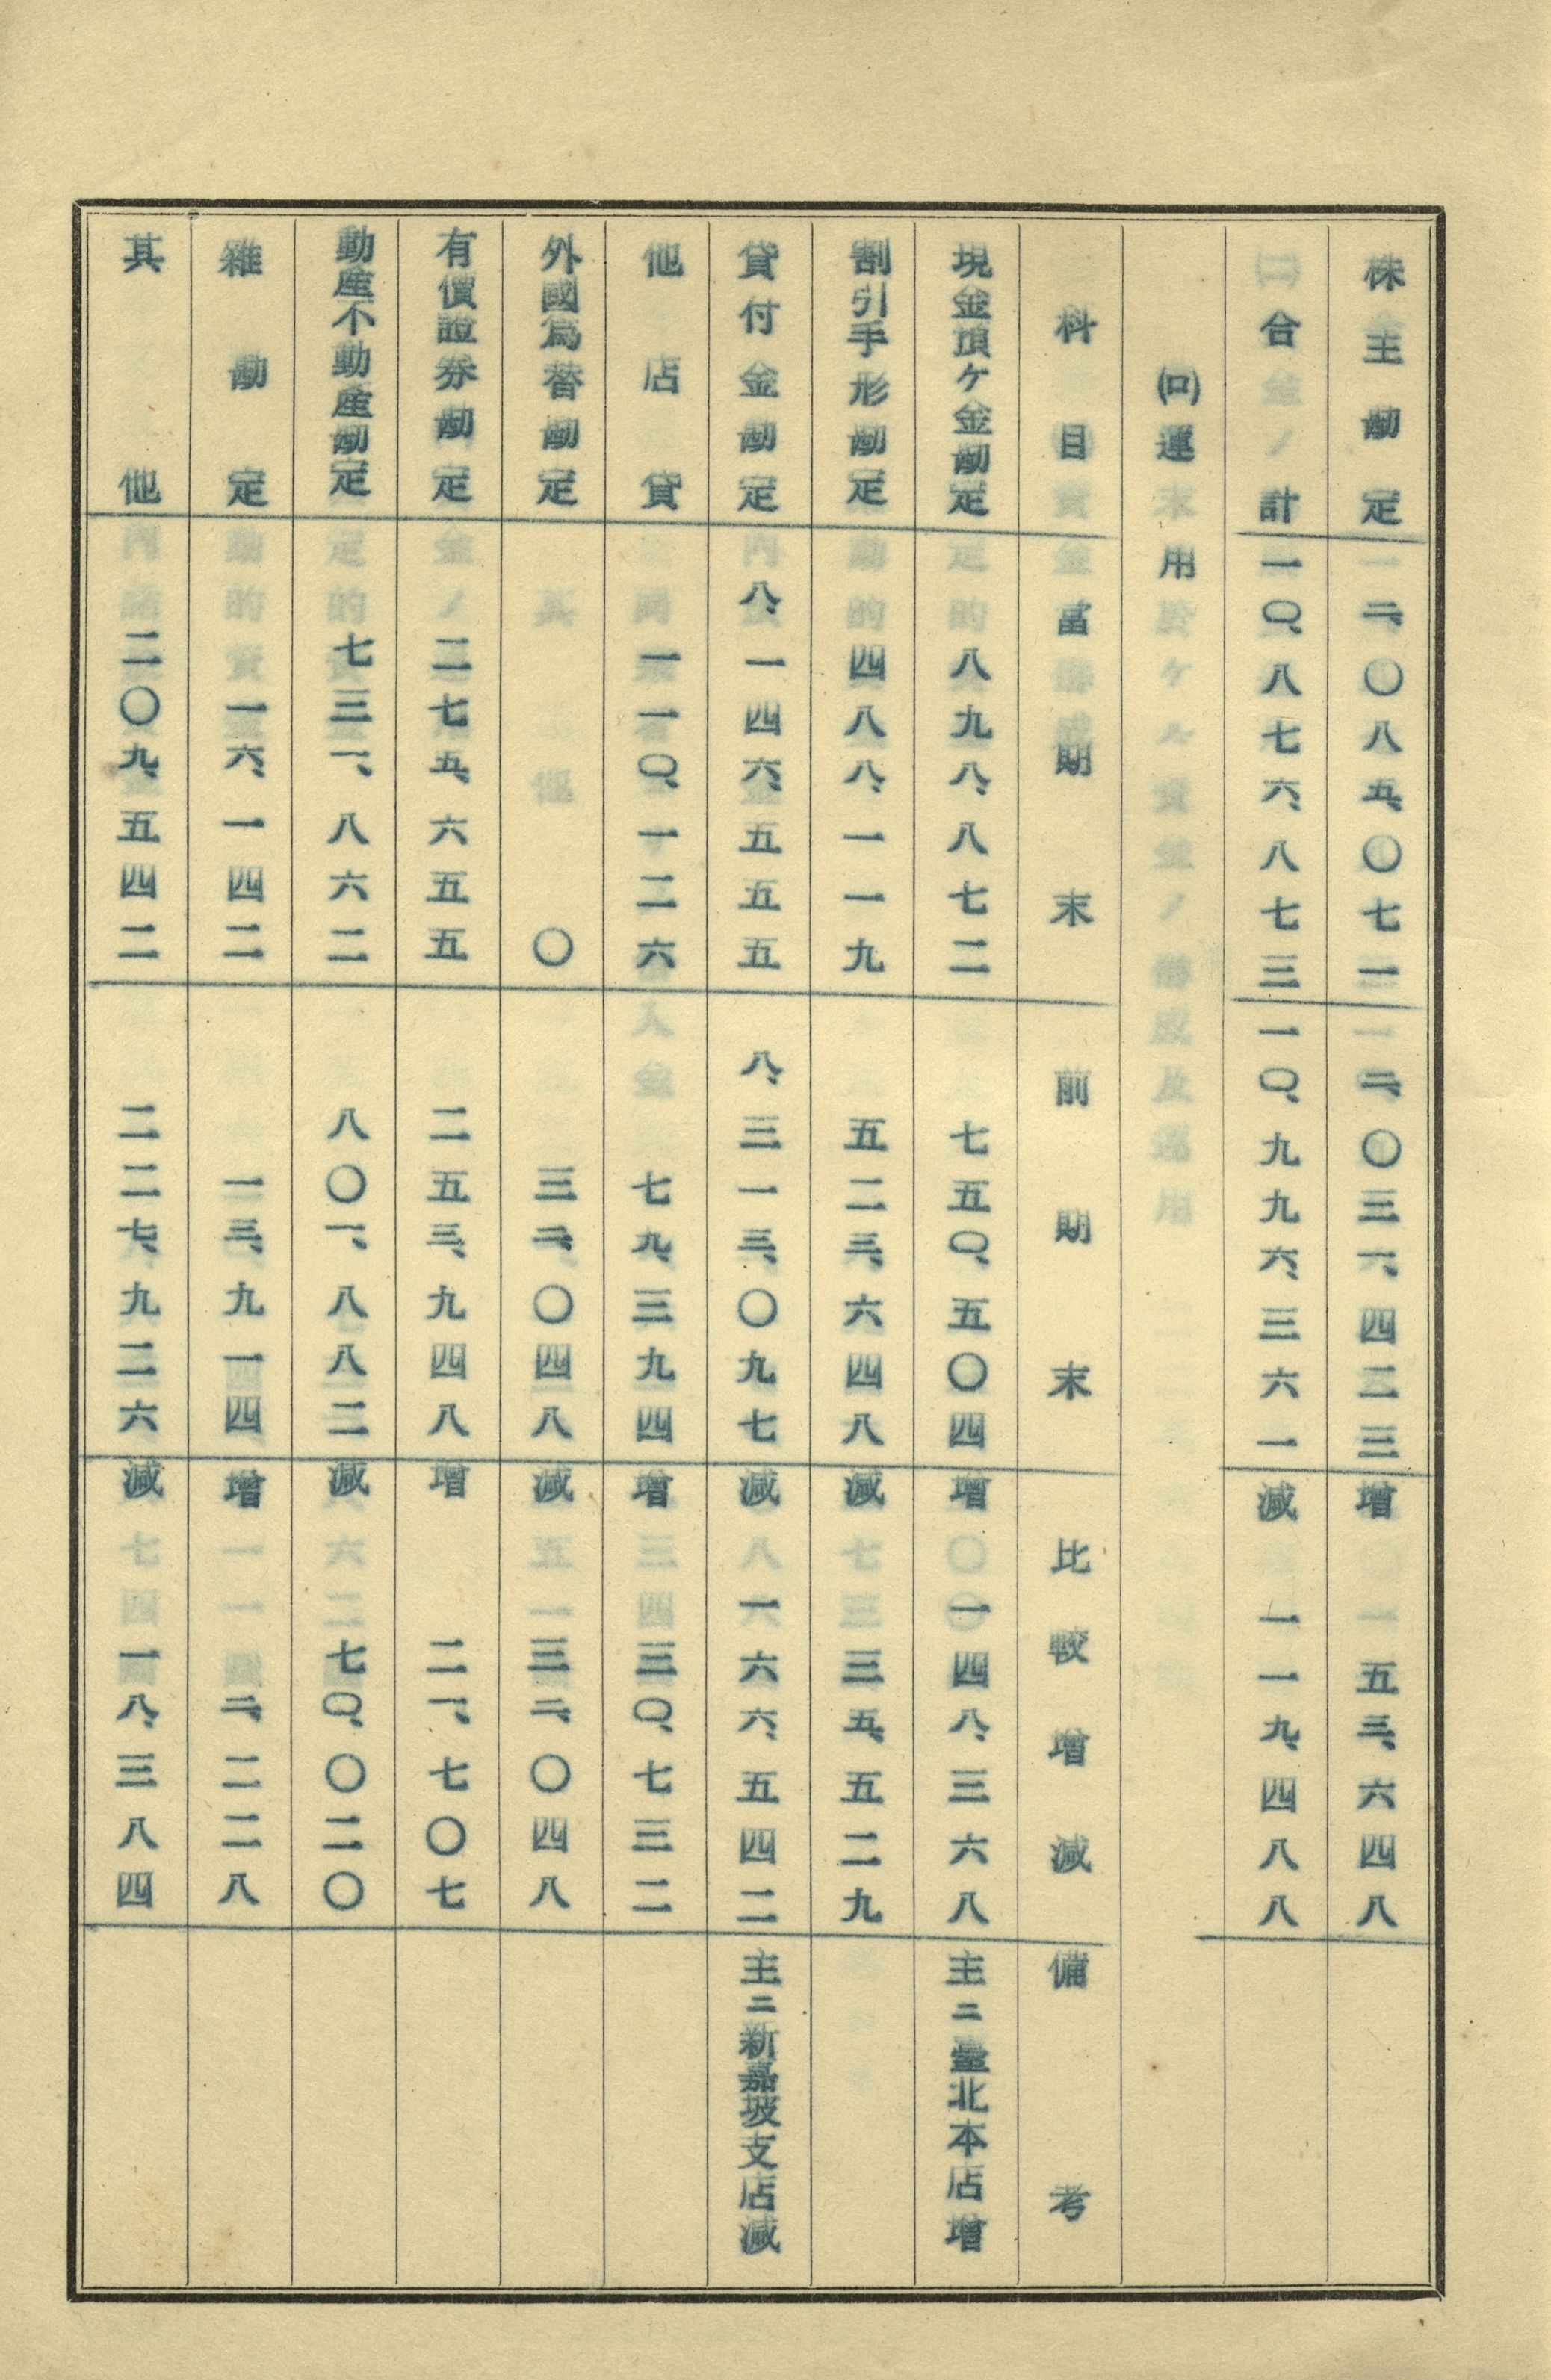 株主勘定 二、〇八五、〇七一 二、〇三一、四二三 增 五三、六四八
合計 一〇、八七六、八七三 一〇、九九六、三六一 減 一一九、四八八
(ロ)運用
科目 當期末 前期末 比較增減 備考
現金預ケ金勘定 八九八、八七二 七五〇、五〇四 增 一四八、三六八 主ニ臺北本店增
割引手形勘定 四八八、一一九 五二三、六四八 減 三五、五二九
貸付金勘定 八、一四六、五五五 八、三一三、〇九七 減 一六六、五四二 主ニ新嘉坡支店減
他店貸 一一〇、一二六 七九、三九四 增 三〇、七三二
外國爲替勘定 〇 三二、〇四八 減 三二、〇四八
有價證券勘定 二七五、六五五 二五三、九四八 增 二一、七〇七
動産不動産勘定 七三一、八六二 八〇一、八八二 減 七〇、〇二〇
雜勘定 一六、一四二 一三、九一四 增 二、二二八
其他 二〇九、五四二 二二七、九二六 減 一八、三八四